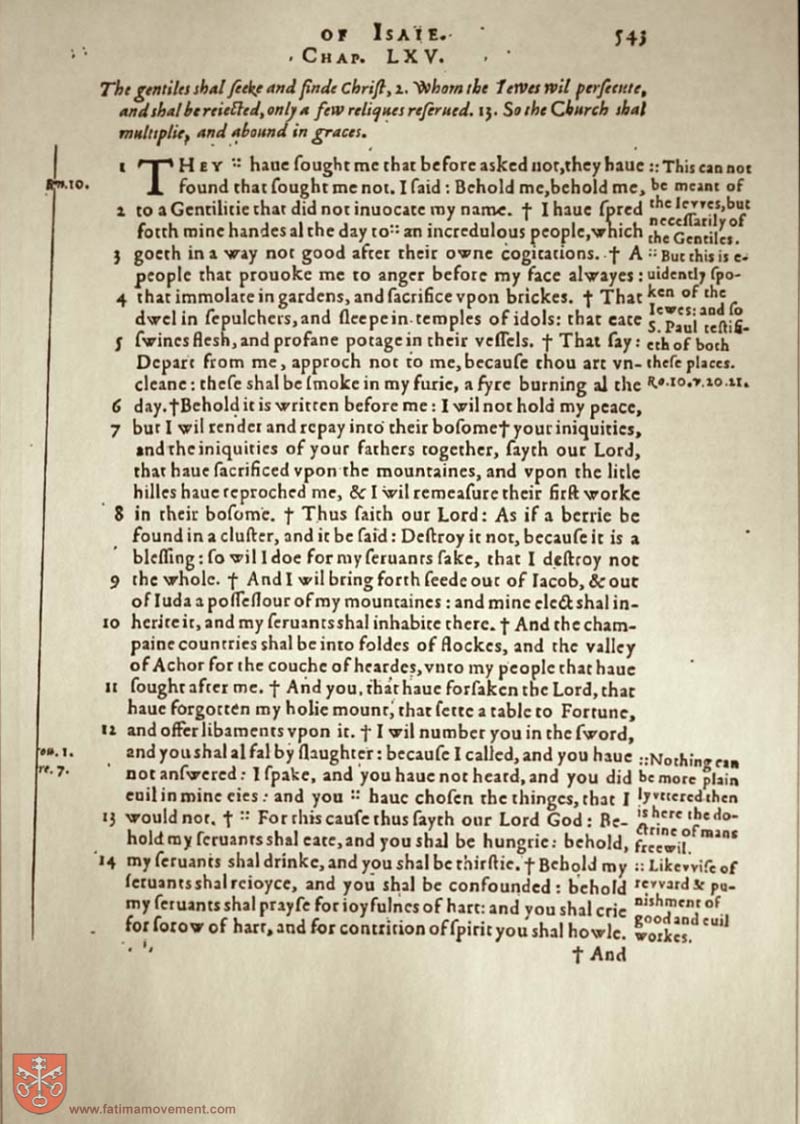 OF ISAIE. 543
CHAP. LXV.
The gentiles shal seeke and finde Christ, 2. Whom the Iewes wil persecute,
and shal be reiected, only a few reliques reserued. 13. So the Church shal
multiplie, and abound in graces.
1 THEY :: haue sought me that before asked not, they haue
found that sought me not. I said: Behold me, behold me,
2 to a Gentilitie that did not inuocate my name. † I haue spred
forth mine handes al the day to :: an incredulous people, which
3 goeth in a way not good after their owne cogitations. † A
people that prouoke me to anger before my face alwayes:
4 that immolate in gardens, and sacrifice vpon brickes. † That
dwel in sepulchers, and sleepe in temples of idols: that eate
5 swines flesh, and profane potage in their vessels. † That say:
Depart from me, approch not to me, because thou art vn-
cleane: these shal be smoke in my furie, a fyre burning al the
6 day. † Behold it is written before me: I wil not hold my peace,
7 but I wil render and repay into their bosome † your iniquities,
and the iniquities of your fathers together, sayth our Lord,
that haue sacrificed vpon the mountaines, and vpon the litle
hilles haue reproched me, & I wil remeasure their first worke
8 in their bosome. † Thus saith our Lord: As if a berrie be
found in a cluster, and it be said: Destroy it not, because it is a
blessing: so wil I doe for my seruants sake, that I destroy not
9 the whole. † And I wil bring forth seede out of Iacob, & out
of Iuda a possessour of my mountaines: and mine elect shal in-
10 herite it, and my seruants shal inhabite there. † And the cham-
paine countries shal be into foldes of flockes, and the valley
of Achor for the couche of heardes, vnto my people that haue
11 sought after me. † And you, that haue forsaken the Lord, that
haue forgotten my holie mount, that sette a table to Fortune,
12 and offer libaments vpon it. † I wil number you in the sword,
and you shal al fal by slaughter: because I called, and you haue
not answered: I spake, and you haue not heard, and you did
euil in mine eies: and you :: haue chosen the thinges, that I
13 would not. † :: For this cause thus sayth our Lord God: Be-
hold my seruants shal eate, and you shal be hungrie: behold,
14 my seruants shal drinke, and you shal be thirstie. † Behold my
seruants shal reioyce, and you shal be confounded: behold
my seruants shal prayse for ioyfulnes of hart: and you shal crie
for sorow of hart, and for contrition of spirit you shal howle.
† And
:: This can not
be meant of
the Iewes, but
necessarily of
the Gentiles.
:: But this is e-
uidently spo-
ken of the
Iewes: and so
S. Paul testifi-
eth of both
these places.
Ro. 10. v. 20. 21.
:: Nothing can
be more plain
ly vttered then
is here the do-
ctrine of mans
freewil.
:: Likevvise of
revvard & pu-
nishment of
good and euil
workes.
Rm. 10.
1.
7.
www.fatimamovement.com